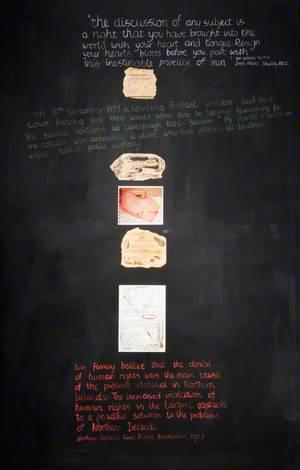 'the discussion of any subject is
a right that you have brought into the
world with your heart and tongue. Resign
your heart's blood before you part with
this inestimable privilege of man
On 19th September 1977 a leading Belfast solicitor said in a
court hearing that there would some day be
the sadistic at Castlereagh RUC Station." Mr Patrick
was defending a client who had alleged ill-treatment
whilst held in police custody.
We firmly believe that the denial
of human rights was the main cause
of the present violence in Northern
Ireland. The increased violation of
human rights is the largest obstacle
to a peaceful solution to the problems
of Northern Ireland.
Northern Ireland Civil Rights Association, 1977